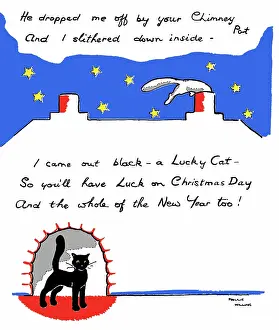 He dropped me off by your Chimney Pot
And I slithered down inside -
I came out black - a Lucky Cat -
So you'll have Luck on Christmas Day
And the whole of the New Year too!